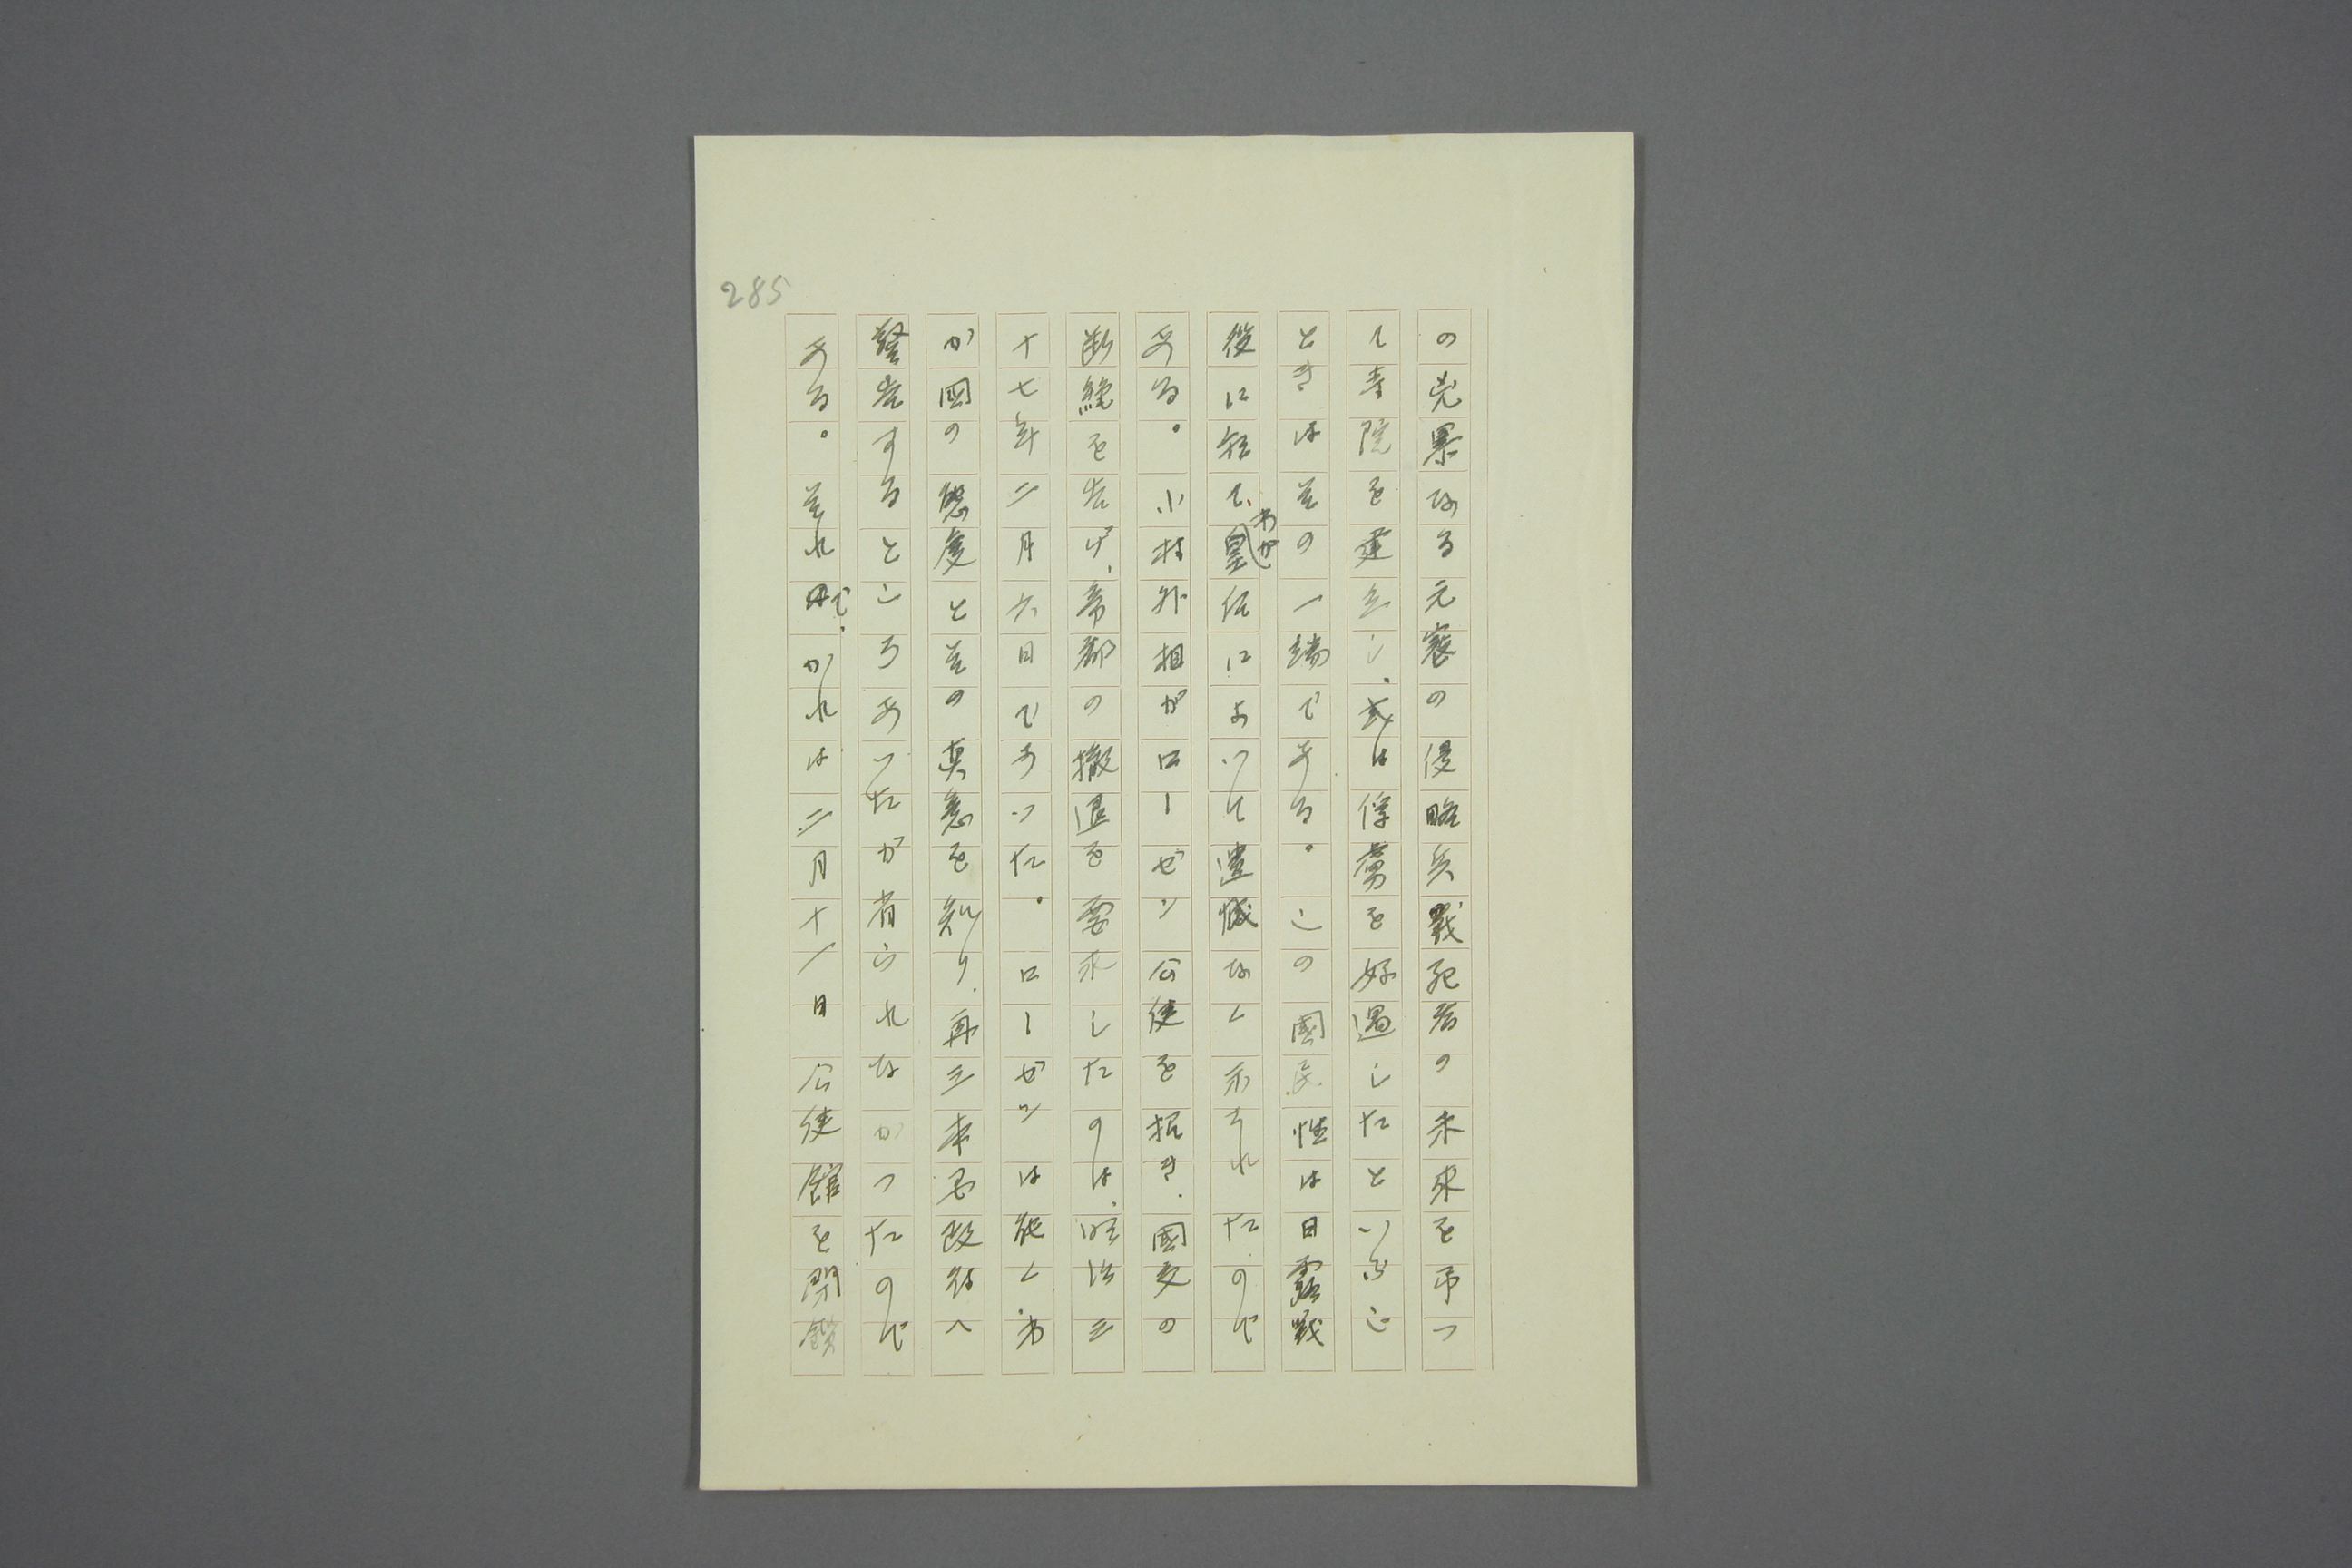 の兇暴なる元寇の侵略兵戰死者の未来を吊つ
て寺院を建立し、或は俘虜を好遇したというご
ときはその一端である。この國民性は日露戰
役に於て、皇(わが)伝によつて遺憾なく示されたので
ある。小村外相がローゼン公使を招き、國交の
断絶を告げ、帝都の撤退を要求したのは、明治三
十七年二月六日であつた。ローゼンは能く、わ
が國の態度とその真意を知り、再三本國政府へ
警告するところあつたが省られなかつたので
ある。それで、かれは二月十一日公使館を閉鎖
285